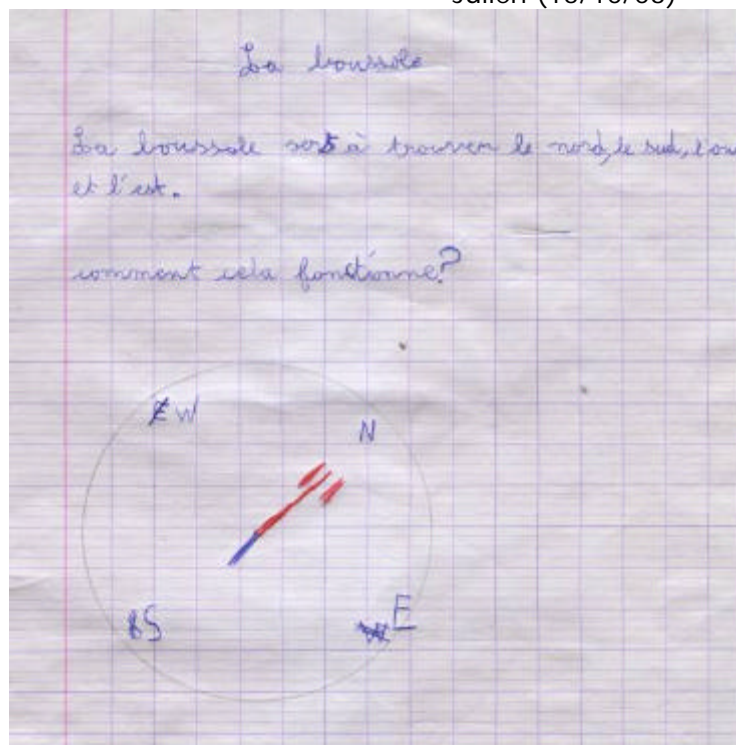 La boussole
La boussole sert à trouver le nord, le sud, l'ou
et l'est.
comment cela fonctionne?
W
N
S
E